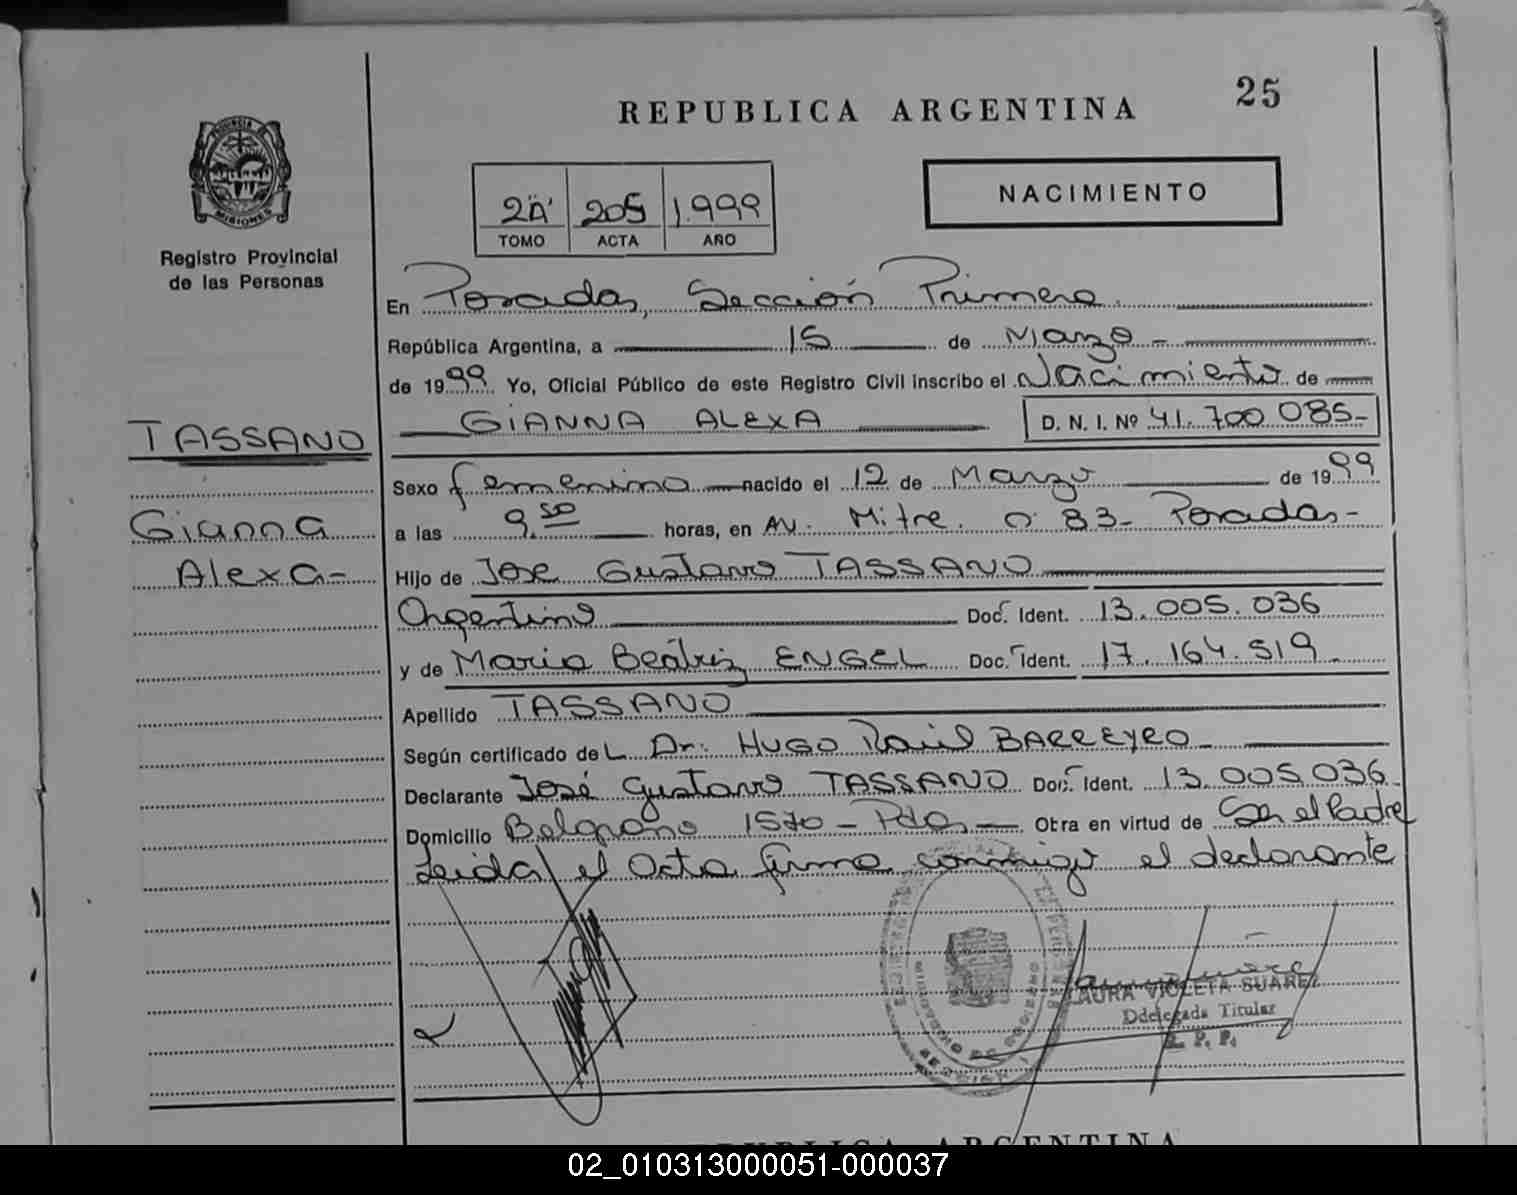 25
REPUBLICA ARGENTINA
PROVINCIA DE
MISIONES
Registro Provincial
de las Personas
2"A" 205 1.999
TOMO ACTA AÑO
NACIMIENTO
En Posadas, Sección Primera
República Argentina, a 15 de Marzo
de 1999 Yo, Oficial Público de este Registro Civil inscribo el Nacimiento de
GIANNA ALEXA D. N. I. Nº 41.700.085-
TASSANO
Sexo femenino nacido el 12 de Marzo de 1999
Gianna
a las 9.50 horas, en Av. Mitre. nº 83- Posadas-
Alexa-
Hijo de Jose Gustavo TASSANO
Argentino Doc. Ident. 13.005.036
y de Maria Beatriz ENGEL Doc. Ident. 17.164.519
Apellido TASSANO
Según certificado del Dr. HUGO Raúl BARREYRO
Declarante José Gustavo TASSANO Doc. Ident. 13.005.036
Domicilio Belgrano 1570 - Pdas Obra en virtud de Ser el Padre
Leida el Acta firma conmigo el declarante
LAURA VIOLETA SUAREZ
Ddelegada Titular
R. P. P.
REPUBLICA ARGENTINA
02_010313000051-000037